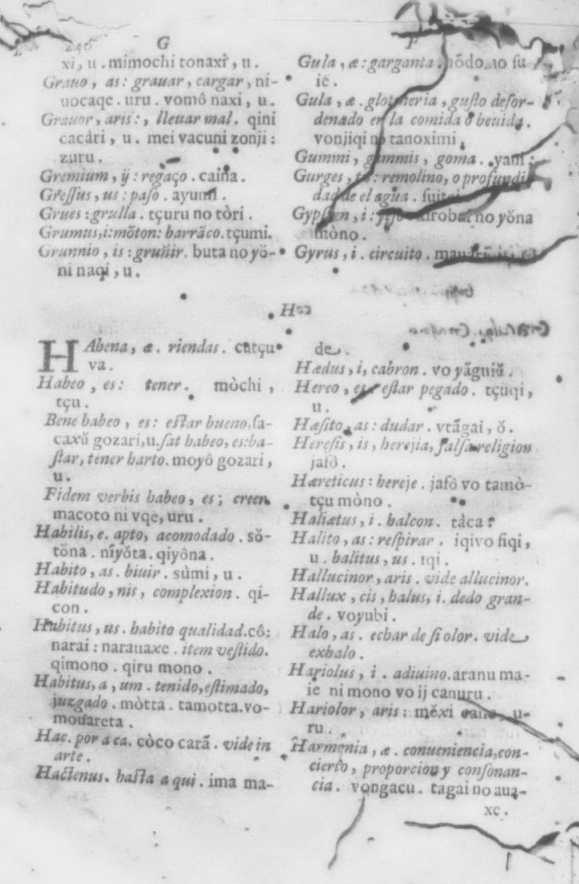 G
xi, u. mimochi tonaxi, u.
Grauo, as: grauar, cargar, ni-
uocaqe. uru. vomô naxi, u.
Grauor, aris:, lleuar mal. qini
cacàri, u. mei vacuni zonji:
zuru.
Gremium, ij: regaço. caina.
Gressus, us: paso. ayumi.
Grues: grulla. tçuru no tòri.
Grumus,i: mõton: barrãco. tçumi.
Grunnio, is: gruñir. buta no yô-
ni naqi, u.
Gula, æ: garganta. nòdo. no su
ie.
Gula, æ. glotoneria, gusto desor-
denado en la comida ò beuida.
vonjiqi no tanoximi,
Gummi, gummis, goma. yani:
Gurges, tis: remolino, o profundi
dad de el agua.
Gypsum, i: no yôna
mòno.
Gyrus, i. circuito.
H
HAbena, æ. riendas. cutçu
va.
Habeo, es: tener. mòchi,
tçu.
Bene habeo, es: estar bueno. sa-
caxũ gozari, u. sat habeo, es: ba-
star, tener harto. moyô gozari,
u.
Fidem verbis habeo, es; creer.
macoto ni vqe, uru.
Habilis, e. apto, acomodado. sŏ-
tŏna. niyŏta. qiyôna.
Habito, as. biuir. sùmi, u.
Habitudo, nis, complexion. qi-
con.
Habitus, us. habito qualidad. cô:
narai: narauaxe. item vestido.
qimono. qiru mono.
Habitus, a, um. tenido, estimado,
juzgado. mòtta. tamotta. vo-
mouareta.
Hac. por a ca. còco carã. vide in
arte.
Hactenus. hasta a qui. ima ma-
de.
Hædus, i, cabron. vo yãguiũ.
Hereo, es. estar pegado. tçuqi,
u.
Hæsito, as: dudar. vtãgai, ŏ.
Heresis, is, herejia, falsa religion
jafô.
Hæreticus: hereje. jafô vo tamò-
tçu mòno.
Haliætus, i. halcon. tàca.
Halito, as: respirar. iqivo fiqi,
u. halitus, us. iqi.
Hallucinor, aris. vide allucinor.
Hallux, cis, halus, i. dedo gran-
de. voyubi.
Halo, as. echar de si olor. vide
exhalo.
Hariolus, i. adiuino. aranu ma-
ie ni mono vo ij canuru.
Hariolor, aris: mĕxi u-
ru.
Harmonia, æ. conueniencia, con-
cierto, proporcion y consonan-
cia. vongacu. tagai no aua-
xe.